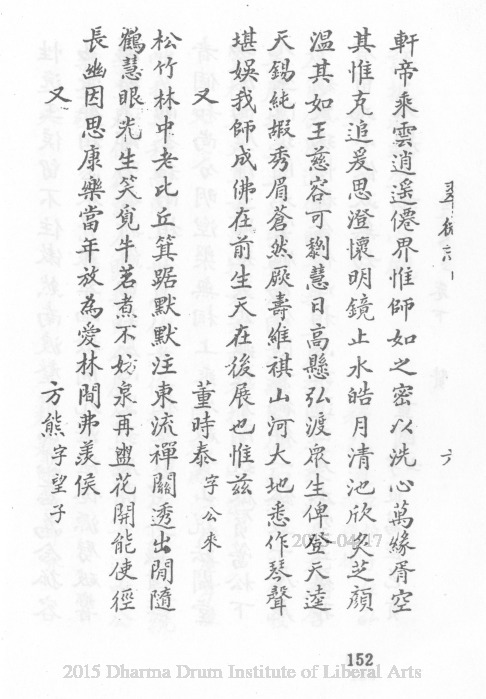 軒帝乘雲逍遥僊界惟師如之密以洗心萬緣胥空
其惟克追爰思澄懷明鏡止水皓月清池欣炙芝顏
溫其如王慈容可㓻慧日高懸弘渡眾生俾登天逵
天錫純嘏秀眉蒼然厥壽維祺山河大地悉作琴聲
堪娛我師成佛在前生天在後展也惟茲
又 董時泰字公來
松竹林中老比丘箕踞默默注東流禪關透出閒隨
鶴慧眼光生笑覓牛茗煮不妨泉再盥花開能使徑
長幽因思康樂當年放為愛林間弗羨侯
又 方熊字望子
六
152
2015-04-17
2015 Dharma Drum Institute of Liberal Arts